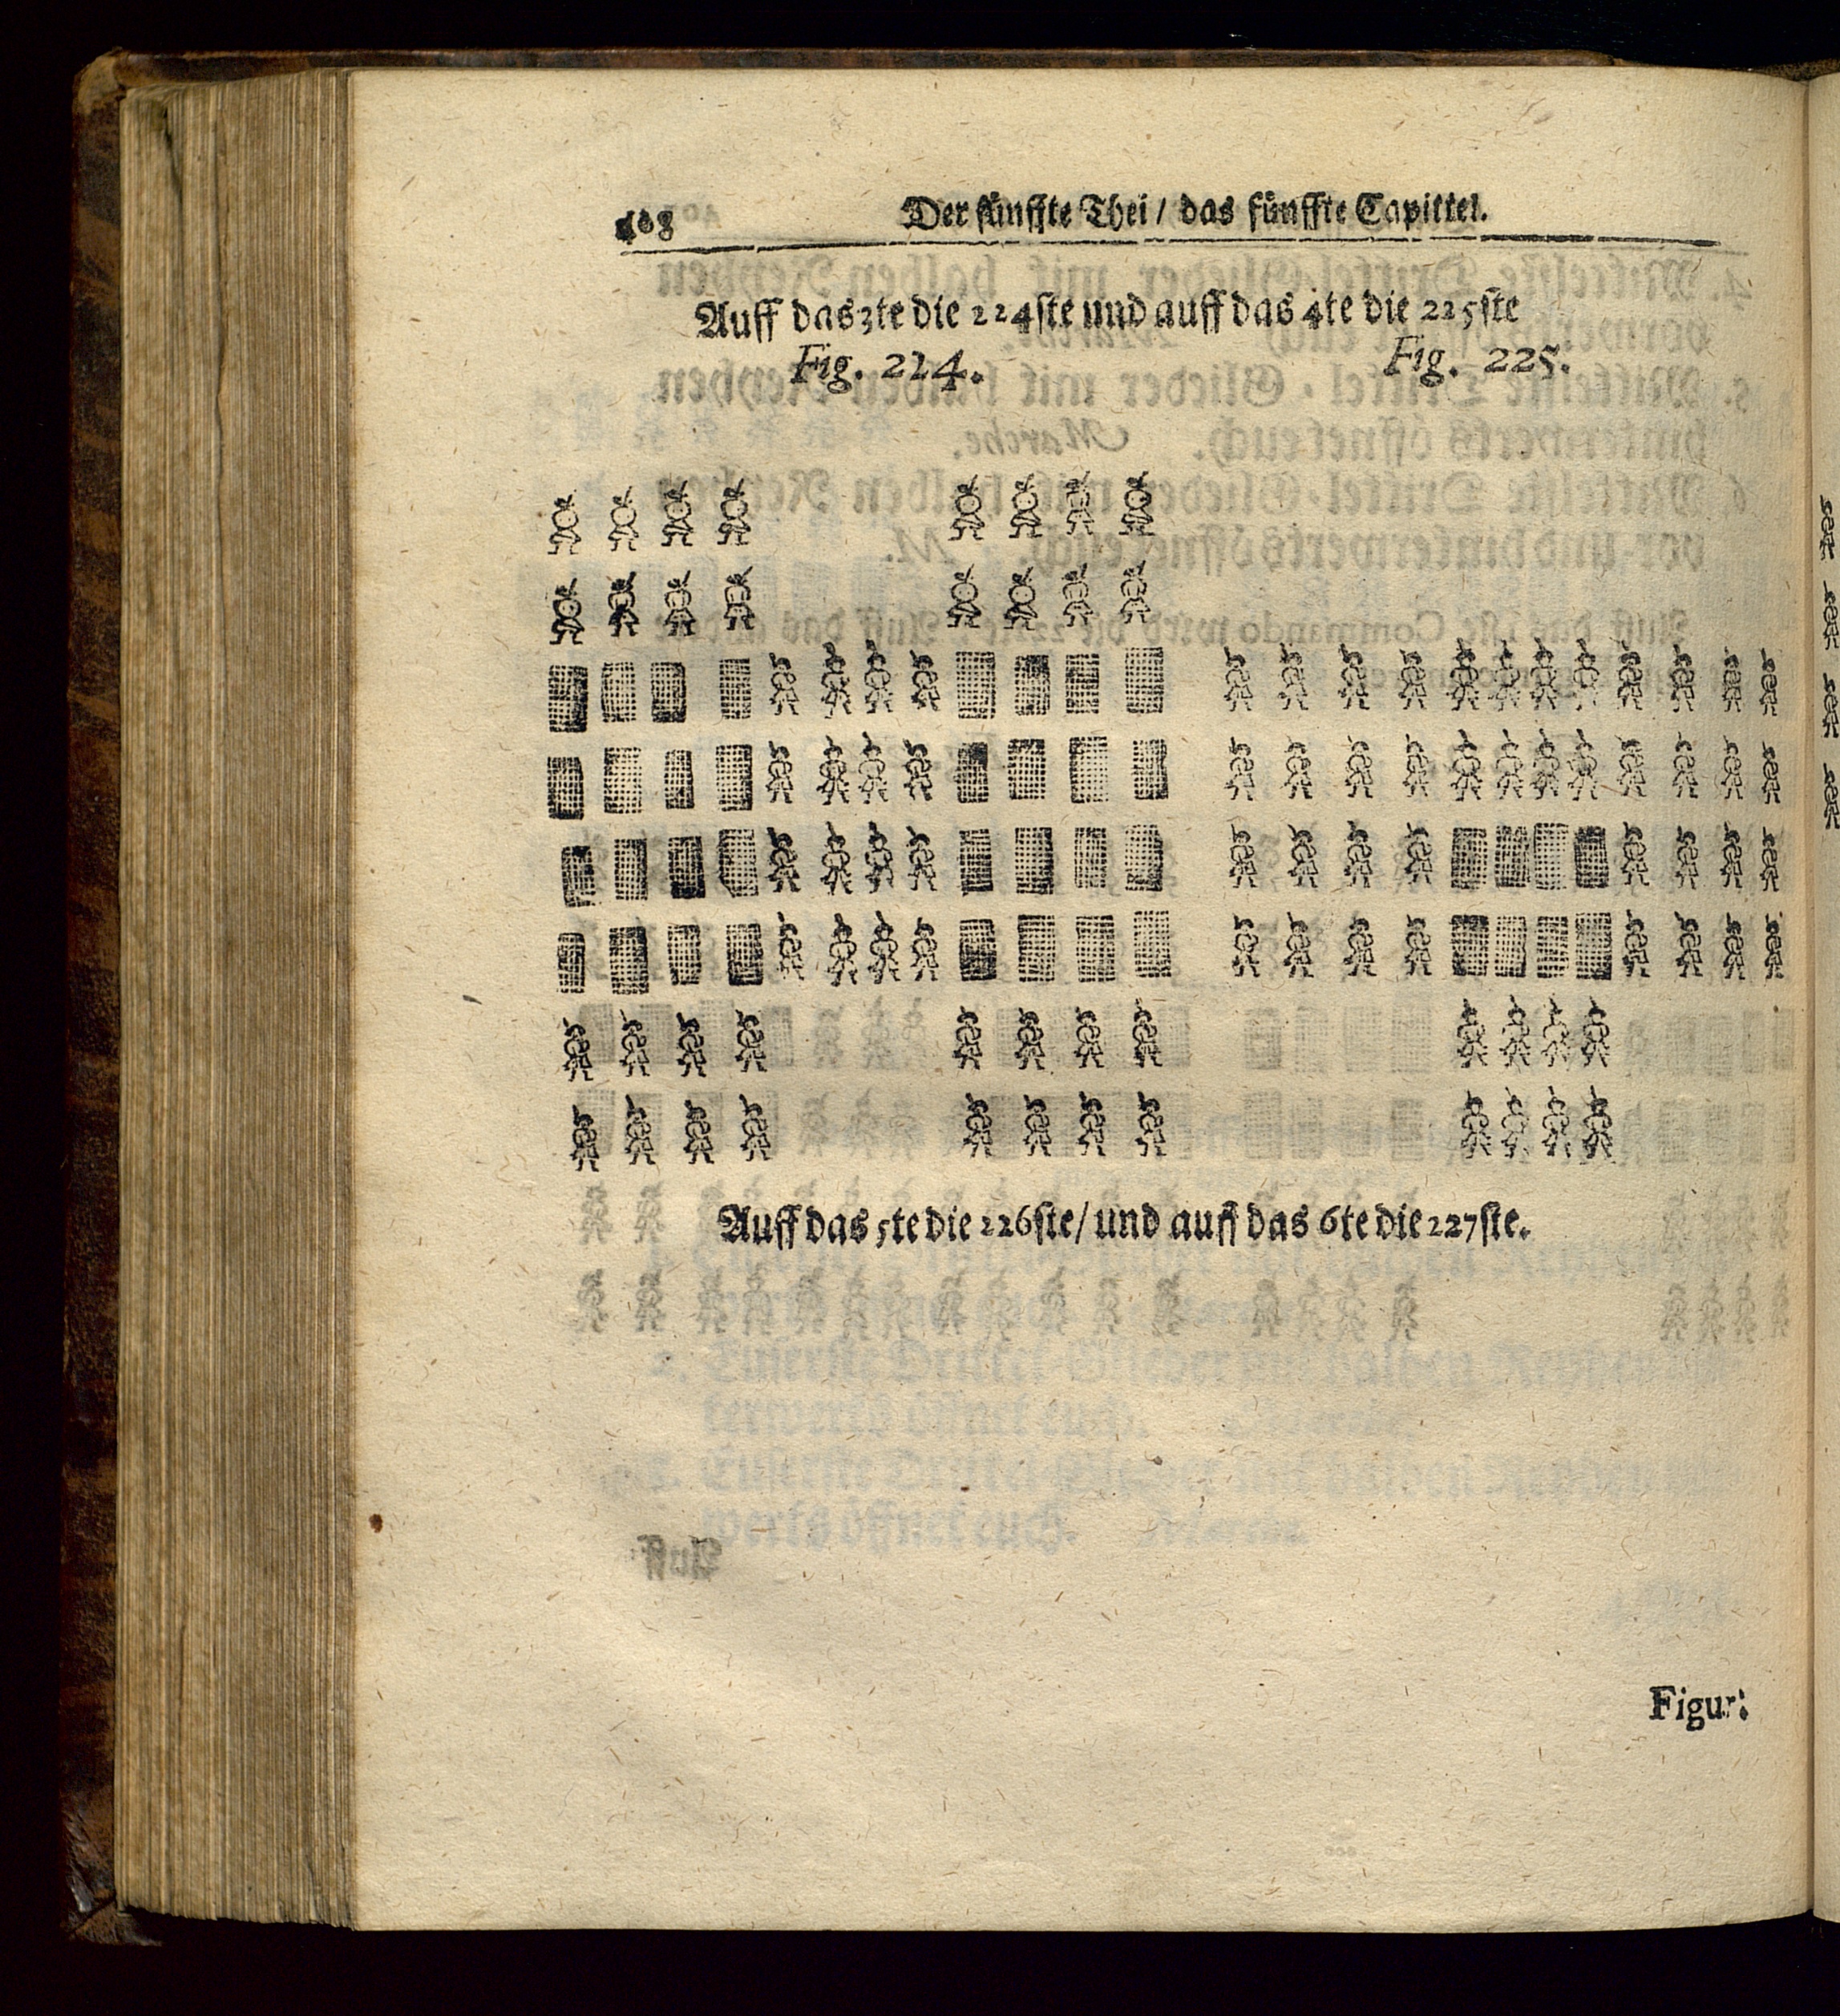 408 Der fünffte Thei / das fünffte Capittel.
Auff das 3te die 224ste und auff das 4te die 225ste
Fig. 224. Fig. 225.
Auff das 5te die 226ste / und auff das 6te die 227ste.
Figur: